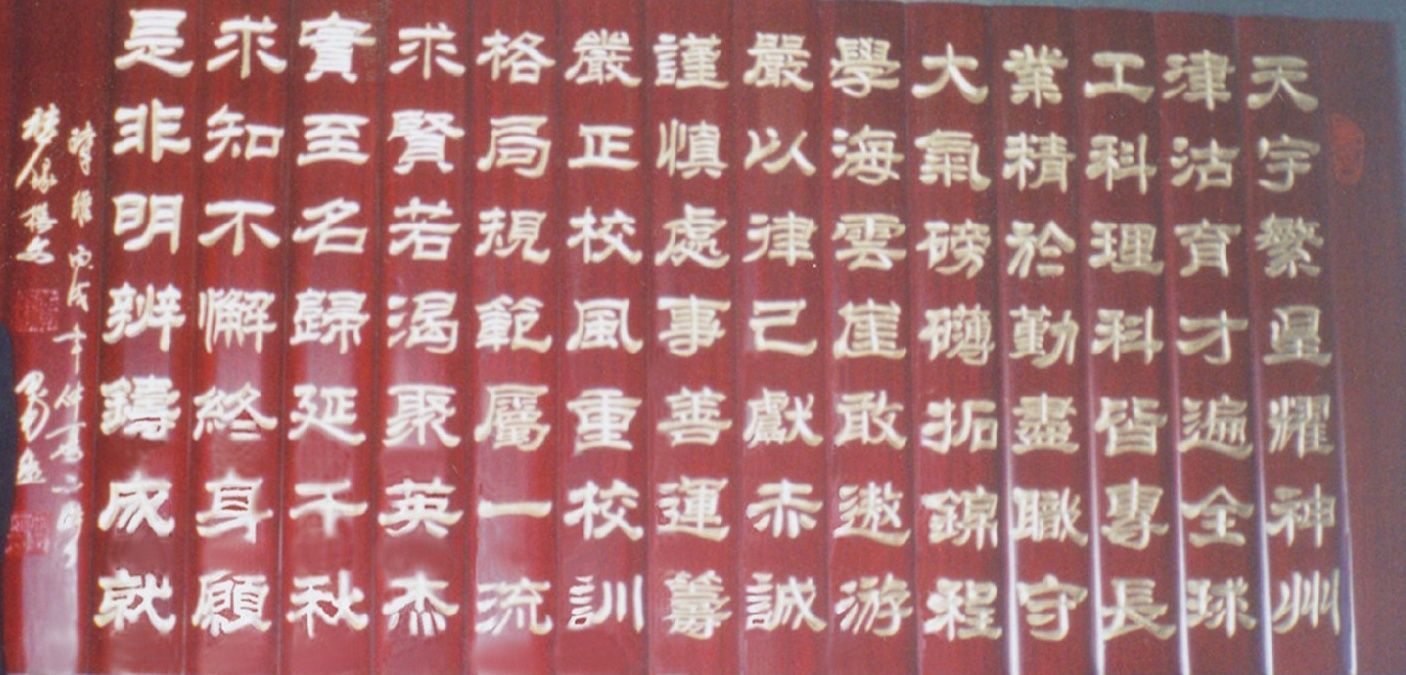 天宇繁星耀神州
津沽育才遍全球
工科理科皆專長
業精於勤盡職守
大氣磅礡拓錦程
學海雲崖敢遨游
嚴以律己獻赤誠
謹慎處事善運籌
嚴正校風重校訓
格局規範屬一流
求賢若渴聚英杰
實至名歸延千秋
求知不懈終身願
是非明辨鑄成就